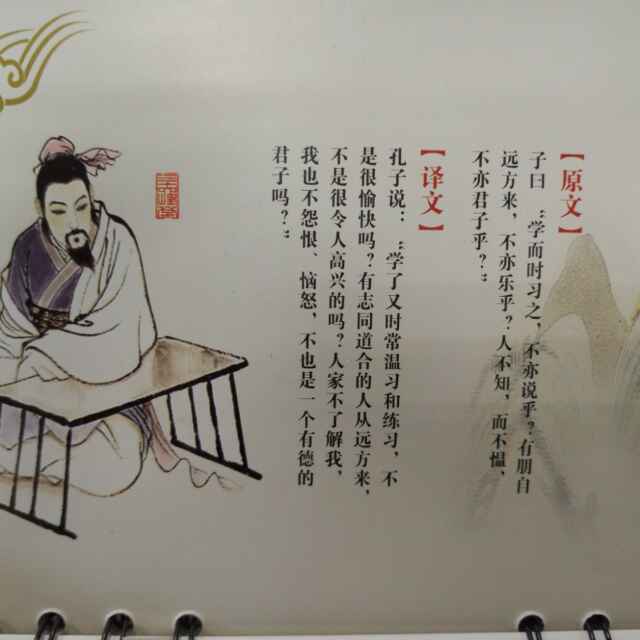 【原文】
子曰:“学而时习之,不亦说乎?有朋自
远方来,不亦乐乎?人不知,而不愠,
不亦君子乎?”
【译文】
孔子说:“学了又时常温习和练习,不
是很愉快吗?有志同道合的人从远方来,
不是很令人高兴的吗?人家不了解我,
我也不怨恨、恼怒,不也是一个有德的
君子吗?”